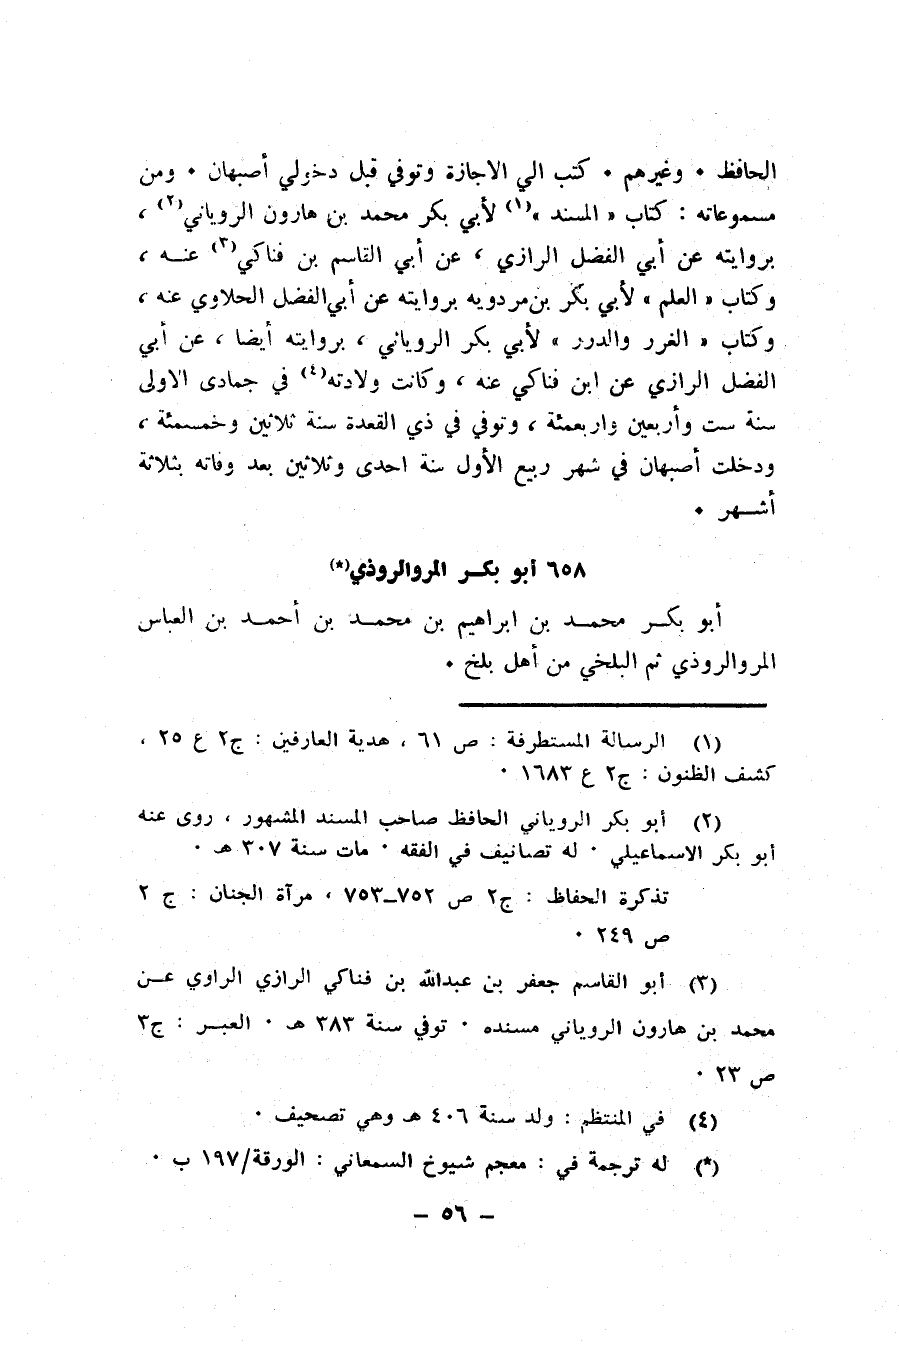 الحافظ ٠ وغيرهم ٠ كتب الي الاجازة وتوفي قبل دخولي أصبهان ٠ ومن
مسموعاته : كتاب « المسند »(١) لأبي بكر محمد بن هارون الروياني(٢) ،
بروايته عن أبي الفضل الرازي ، عن أبي القاسم بن فناكي(٣) عنه ،
وكتاب « العلم » لأبي بكر بن‌مردويه بروايته عن أبي‌الفضل الحلاوي عنه ،
وكتاب « الغرر والدرر » لأبي بكر الروياني ، بروايته أيضا ، عن أبي
الفضل الرازي عن ابن فناكي عنه ، وكانت ولادته(٤) في جمادى الاولى
سنة ست وأربعين واربعمئة ، وتوفي في ذي القعدة سنة ثلاثين وخمسمئة ،
ودخلت أصبهان في شهر ربيع الأول سنة احدى وثلاثين بعد وفاته بثلاثة
أشهر ٠
٦٥٨ أبو بكر المروالروذي(*)
أبو بكر محمد بن ابراهيم بن محمد بن أحمد بن العباس
المروالروذي ثم البلخي من أهل بلخ ٠
(١) الرسالة المستطرفة : ص ٦١ ، هدية العارفين : ج٢ ع ٢٥ ،
كشف الظنون : ج٢ ع ١٦٨٣ ٠
(٢) أبو بكر الروياني الحافظ صاحب المسند المشهور ، روى عنه
أبو بكر الاسماعيلي ٠ له تصانيف في الفقه ٠ مات سنة ٣٠٧ هـ ٠
تذكرة الحفاظ : ج٢ ص ٧٥٢ـ٧٥٣ ، مرآة الجنان : ج ٢
ص ٢٤٩ ٠
(٣) أبو القاسم جعفر بن عبدالله بن فناكي الرازي الراوي عن
محمد بن هارون الروياني مسنده ٠ توفي سنة ٣٨٣ هـ ٠ العبر : ج٣
ص ٢٣ ٠
(٤) في المنتظم : ولد سنة ٤٠٦ هـ وهي تصحيف ٠
(*) له ترجمة في : معجم شيوخ السمعاني : الورقة/١٩٧ ب ٠
– ٥٦ –